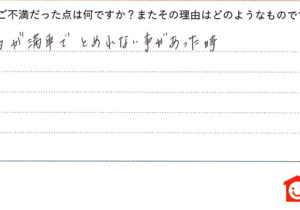 ご不満だった点は何ですか？またその理由はどのようなもので
が満車でとめれない事があった時